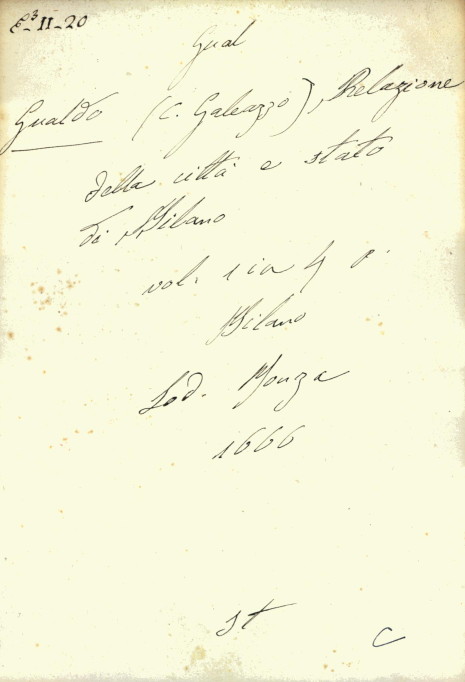 E³-II-20
Gual
Gualdo (C. Galeazzo), Relazione
della città e stato
di Milano
vol. 1 in 4 o.
Milano
Lod. Monza
1666
St
C